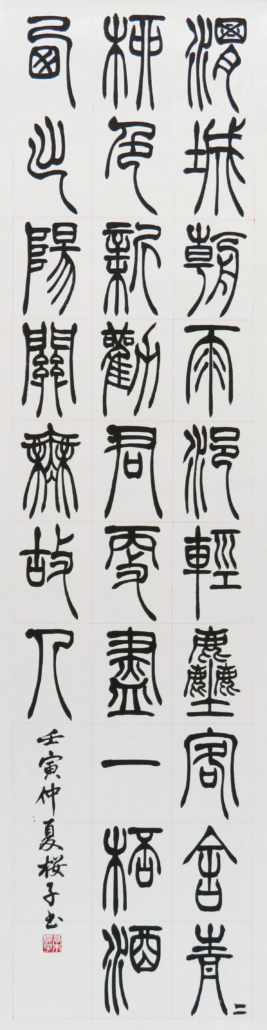 渭城朝雨浥輕塵客舍青=
柳色新勸君更盡一桮酒
西出陽關無故人
壬寅仲夏桜子书